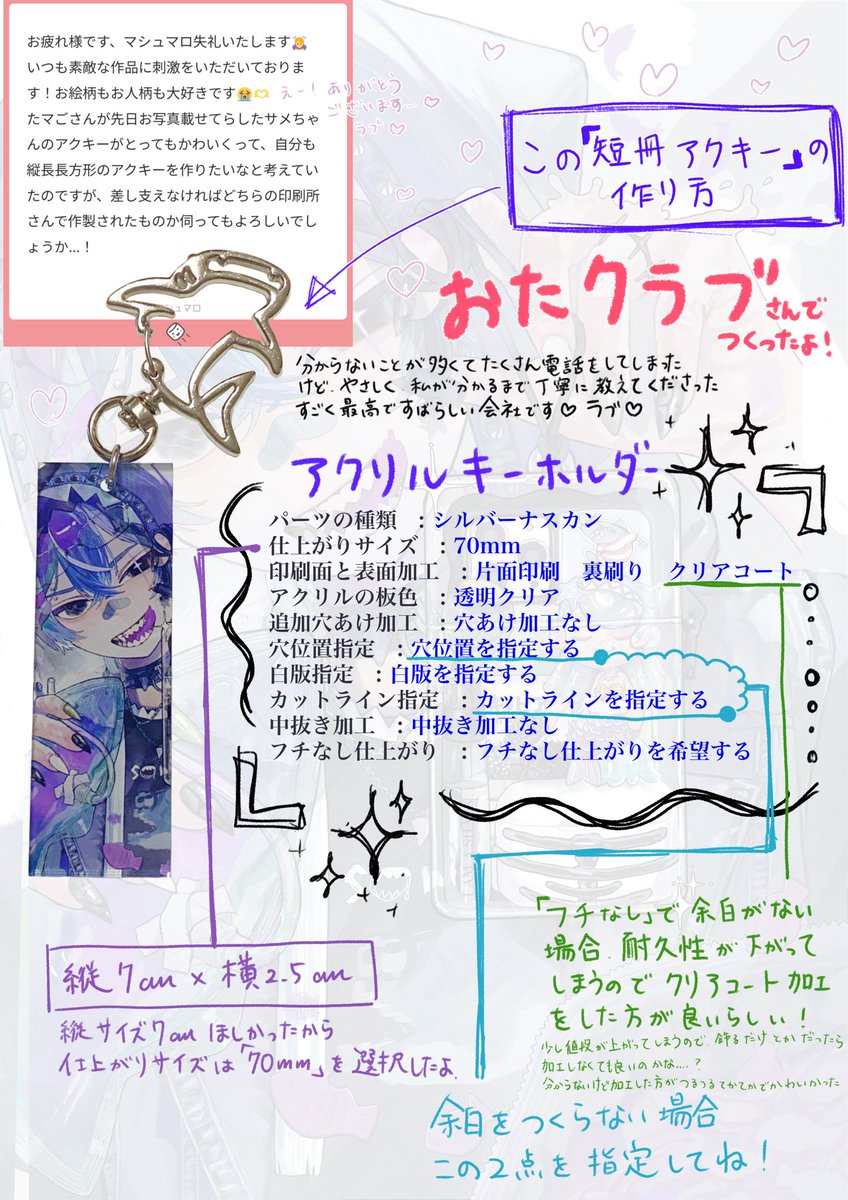 お疲れ様です、マシュマロ失礼いたします🙇‍♀️
いつも素敵な作品に刺激をいただいておりま
す！お絵柄もお人柄も大好きです😭🫶
たマごさんが先日お写真載せてらしたサメちゃ
んのアクキーがとってもかわいくって、自分も
縦長長方形のアクキーを作りたいなと考えてい
たのですが、差し支えなければどちらの印刷所
さんで作製されたものか伺ってもよろしいでし
ょうか…！
えー！ありがとう
ございます…
ラブ♡
マシュマロ
この「短冊アクキー」の
作り方
おたクラブさんで
つくったよ！
分からないことが多くてたくさん電話をしてしまった
けど、やさしく私が分かるまで丁寧に教えてくださった
すごく最高ですばらしい会社です♡ラブ♡
アクリルキーホルダー
パーツの種類　：シルバーナスカン
仕上がりサイズ　：70mm
印刷面と表面加工　：片面印刷　裏刷り　クリアコート
アクリルの板色　：透明クリア
追加穴あけ加工　：穴あけ加工なし
穴位置指定　：穴位置を指定する
白版指定　：白版を指定する
カットライン指定　：カットラインを指定する
中抜き加工　：中抜き加工なし
フチなし仕上がり　：フチなし仕上がりを希望する
縦7cm×横2.5cm
縦サイズ7cmほしかったから
仕上がりサイズは「70mm」を選択したよ.
「フチなし」で余白がない
場合、耐久性が下がって
しまうのでクリアコート加工
をした方が良いらしい！
少し値段が上がってしまうので、飾るだけとかだったら
加工しなくても良いのかな…？
分からないけど加工した方がつるつるてかてかでかわいかった
余白をつくらない場合
この2点を指定してね！